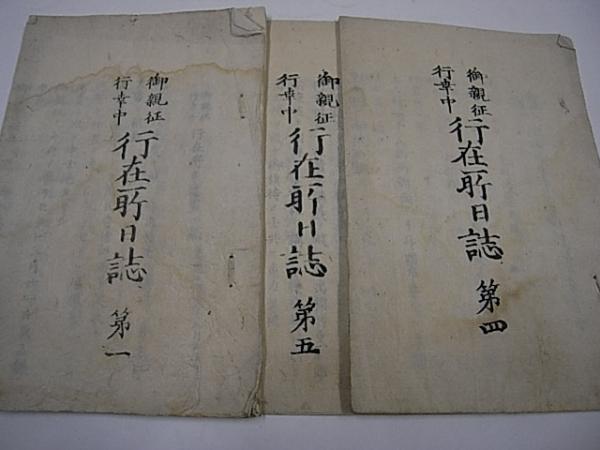 御親征
行幸中
行在所日誌 第四
御親征
行幸中
行在所日誌 第五
御親征
行幸中
行在所日誌 第一